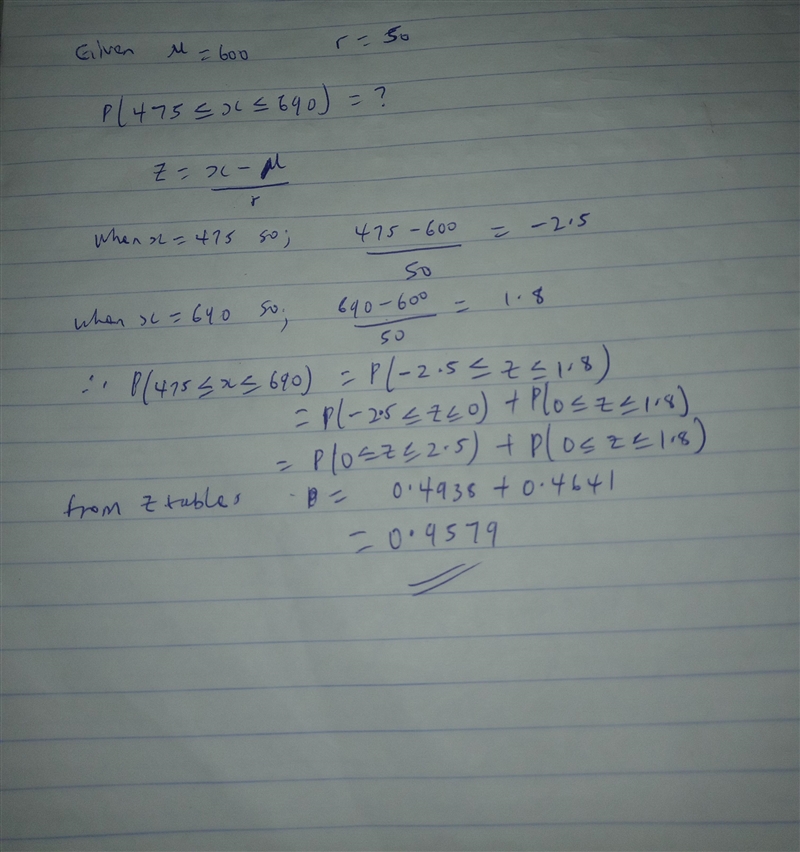 Given μ = 600 r = 50
P(475 ≤ x ≤ 690) = ?
z = x - μ
r
when x = 475 so; 475 - 600 = -2.5
50
when x = 690 so; 690 - 600 = 1.8
50
∴ P(475 ≤ x ≤ 690) = P(-2.5 ≤ z ≤ 1.8)
= P(-2.5 ≤ z ≤ 0) + P(0 ≤ z ≤ 1.8)
= P(0 ≤ z ≤ 2.5) + P(0 ≤ z ≤ 1.8)
from z tables = 0.4938 + 0.4641
= 0.9579